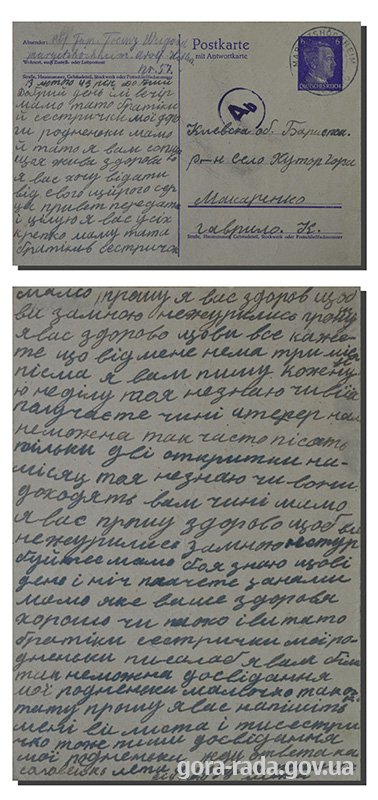 Absender:
Wohnort, auch Zustell- oder Leitpostamt
Nr. 57.
Straße, Hausnummer, Gebäudeteil, Stockwerk oder Postschließfachnummer
Postkarte
mit Antwortkarte
DEUTSCHES REICH
Добрий день їм вечір
мамо тато братіки
й сестрички мої доро
ги родненьки мамо
й тато я вам
щоя жива здорова
я вас хочу відати
від свого щірого сер
ця привет передати
і цілую я вас усіх
крепко маму тата
братіків сестричок
Киевска об. Баришп.
р-н село Хутор Гора
Макаренко
гаврило. К.
Straße, Hausnummer, Gebäudeteil, Stockwerk oder Postschließfachnummer
мамо прошу я вас здоров щоб
ви замною нежурились прошу
я вас здорово щови все каже-
те що відмене нема три
пісма я вам пишу кожену
ю неділу тая незнаю чи ви
получаєте чині итепер нам
неможена так часто пісать
тільки дві откритки на-
місяц тая незнаю чи вони
доходять вам чині мамо
я вас прошу здорово щоб ви
нежурилися замною нетур
буйтес мамо боя знаю щови
дено і ніч плачете занами
мамо яке ваше здоровя
хорошо чи тато
братіки сестрички мої ро-
дненьки писалаб я вам більш
так неможна досвідання
мої родненьки мамочко та
тату прошу я вас напишіть
мені ви листа і ти сестри
чко тоже пиши досвідання
мої родненьки жду ответа как
соловейко лета
gora-rada.gov.ua